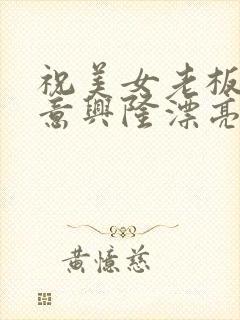 祝美女老板
意興隆漂亮
黄憶慈